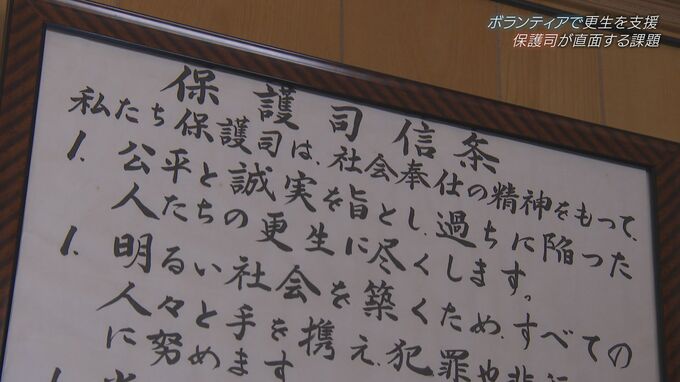 ボランティアで更生を支援
保護司が直面する課題
保護司信条
私たち保護司は、社会奉仕の精神をもって、
1. 公平と誠実を旨とし、過ちに陥った
人たちの更生に尽くします。
1. 明るい社会を築くため、すべての
人々と手を携え、犯罪や非行
に努めます
1.